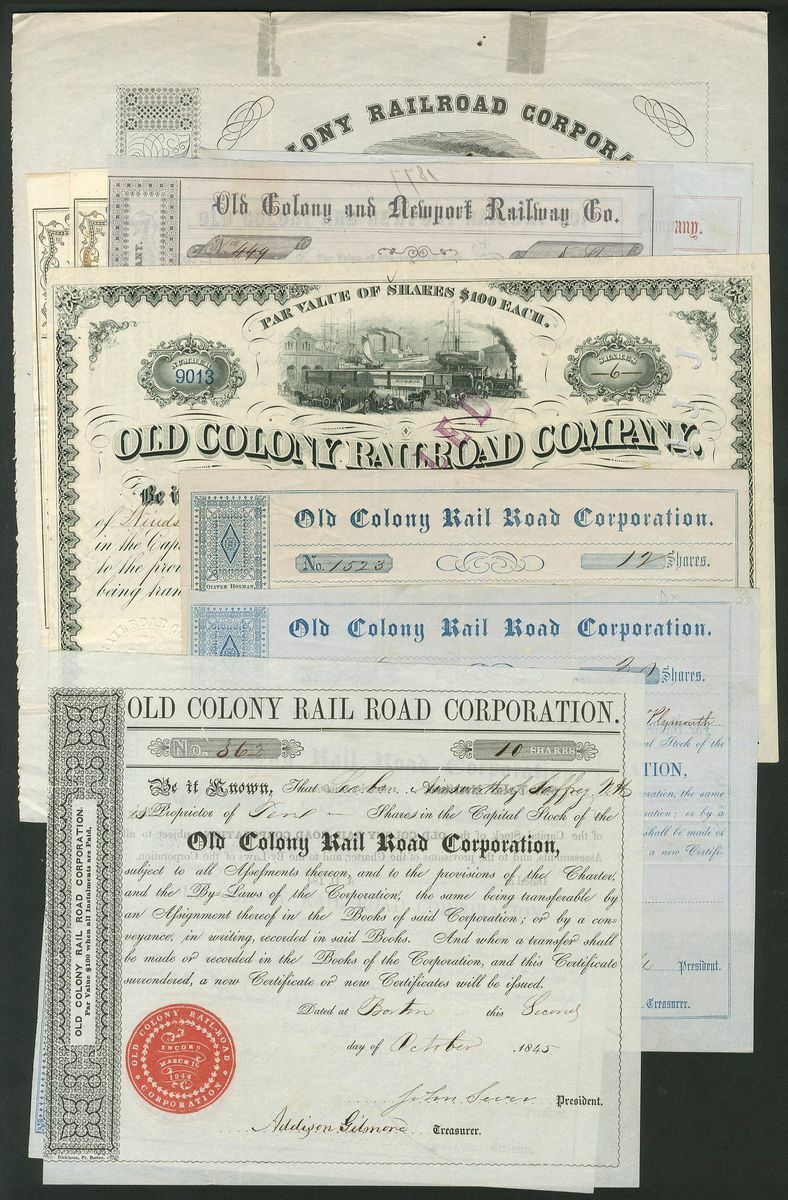 OLONY RAILROAD CORPORA
1877
Old Colony and Newport Railway Co.
any.
No. 449
PAR VALUE OF SHARES $100 EACH.
NUMBER
9013
SHARES
6
LED
OLD COLONY RAILROAD COMPANY.
Be it
of Winds
in the Capi
to the prov
being tran
Old Colony Rail Road Corporation.
No. 1523
12 Shares.
OLIVER HOLMAN,
Old Colony Rail Road Corporation.
Shares.
Plymouth
Stock of the
TION,
eration, the same
ration; or by a
shall be made or
a new Certifi
President.
Treasurer.
OLD COLONY RAIL ROAD CORPORATION.
No. 362
10 SHARES
Be it Known, That Ainsworth of Jaffrey N.H
is Proprietor of Ten Shares in the Capital Stock of the
Old Colony Rail Road Corporation,
subject to all Assessments thereon, and to the provisions of the Charter,
and the By=Laws of the Corporation, the same being transferable by
an Assignment thereof in the Books of said Corporation; or by a con=
veyance, in writing, recorded in said Books. And when a transfer shall
be made or recorded in the Books of the Corporation, and this Certificate
surrendered, a new Certificate or new Certificates will be issued.
Dated at Boston this Second
day of October 1845
John Sever President.
Addison Gilmore Treasurer.
OLD COLONY RAIL ROAD CORPORATION.
Par Value $100 when all Instalments are Paid.
OLD COLONY RAIL-ROAD CORPORATION
INCORD
MARCH 16
1844
Dickinson, Pr. Boston.